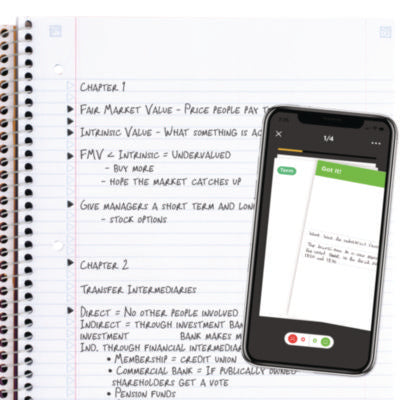 CHAPTER 1
FAIR MARKET VALUE - PRICE PEOPLE PAY
INTRINSIC VALUE - WHAT SOMETHING IS
FMV < INTRINSIC = UNDERVALUED
- BUY MORE
- HOPE THE MARKET CATCHES UP
GIVE MANAGERS A SHORT TERM AND
- STOCK OPTIONS
CHAPTER 2
TRANSFER INTERMEDIARIES
DIRECT = NO OTHER PEOPLE INVOLVED
INDIRECT = THROUGH INVESTMENT
INVESTMENT BANK MAKES
IND. THROUGH FINANCIAL
• MEMBERSHIP = CREDIT UNION
• COMMERCIAL BANK = IF PUBLICALLY OWNED
SHAREHOLDERS GET A VOTE
• PENSION FUNDS
1/4
Term
Got it!
0 0